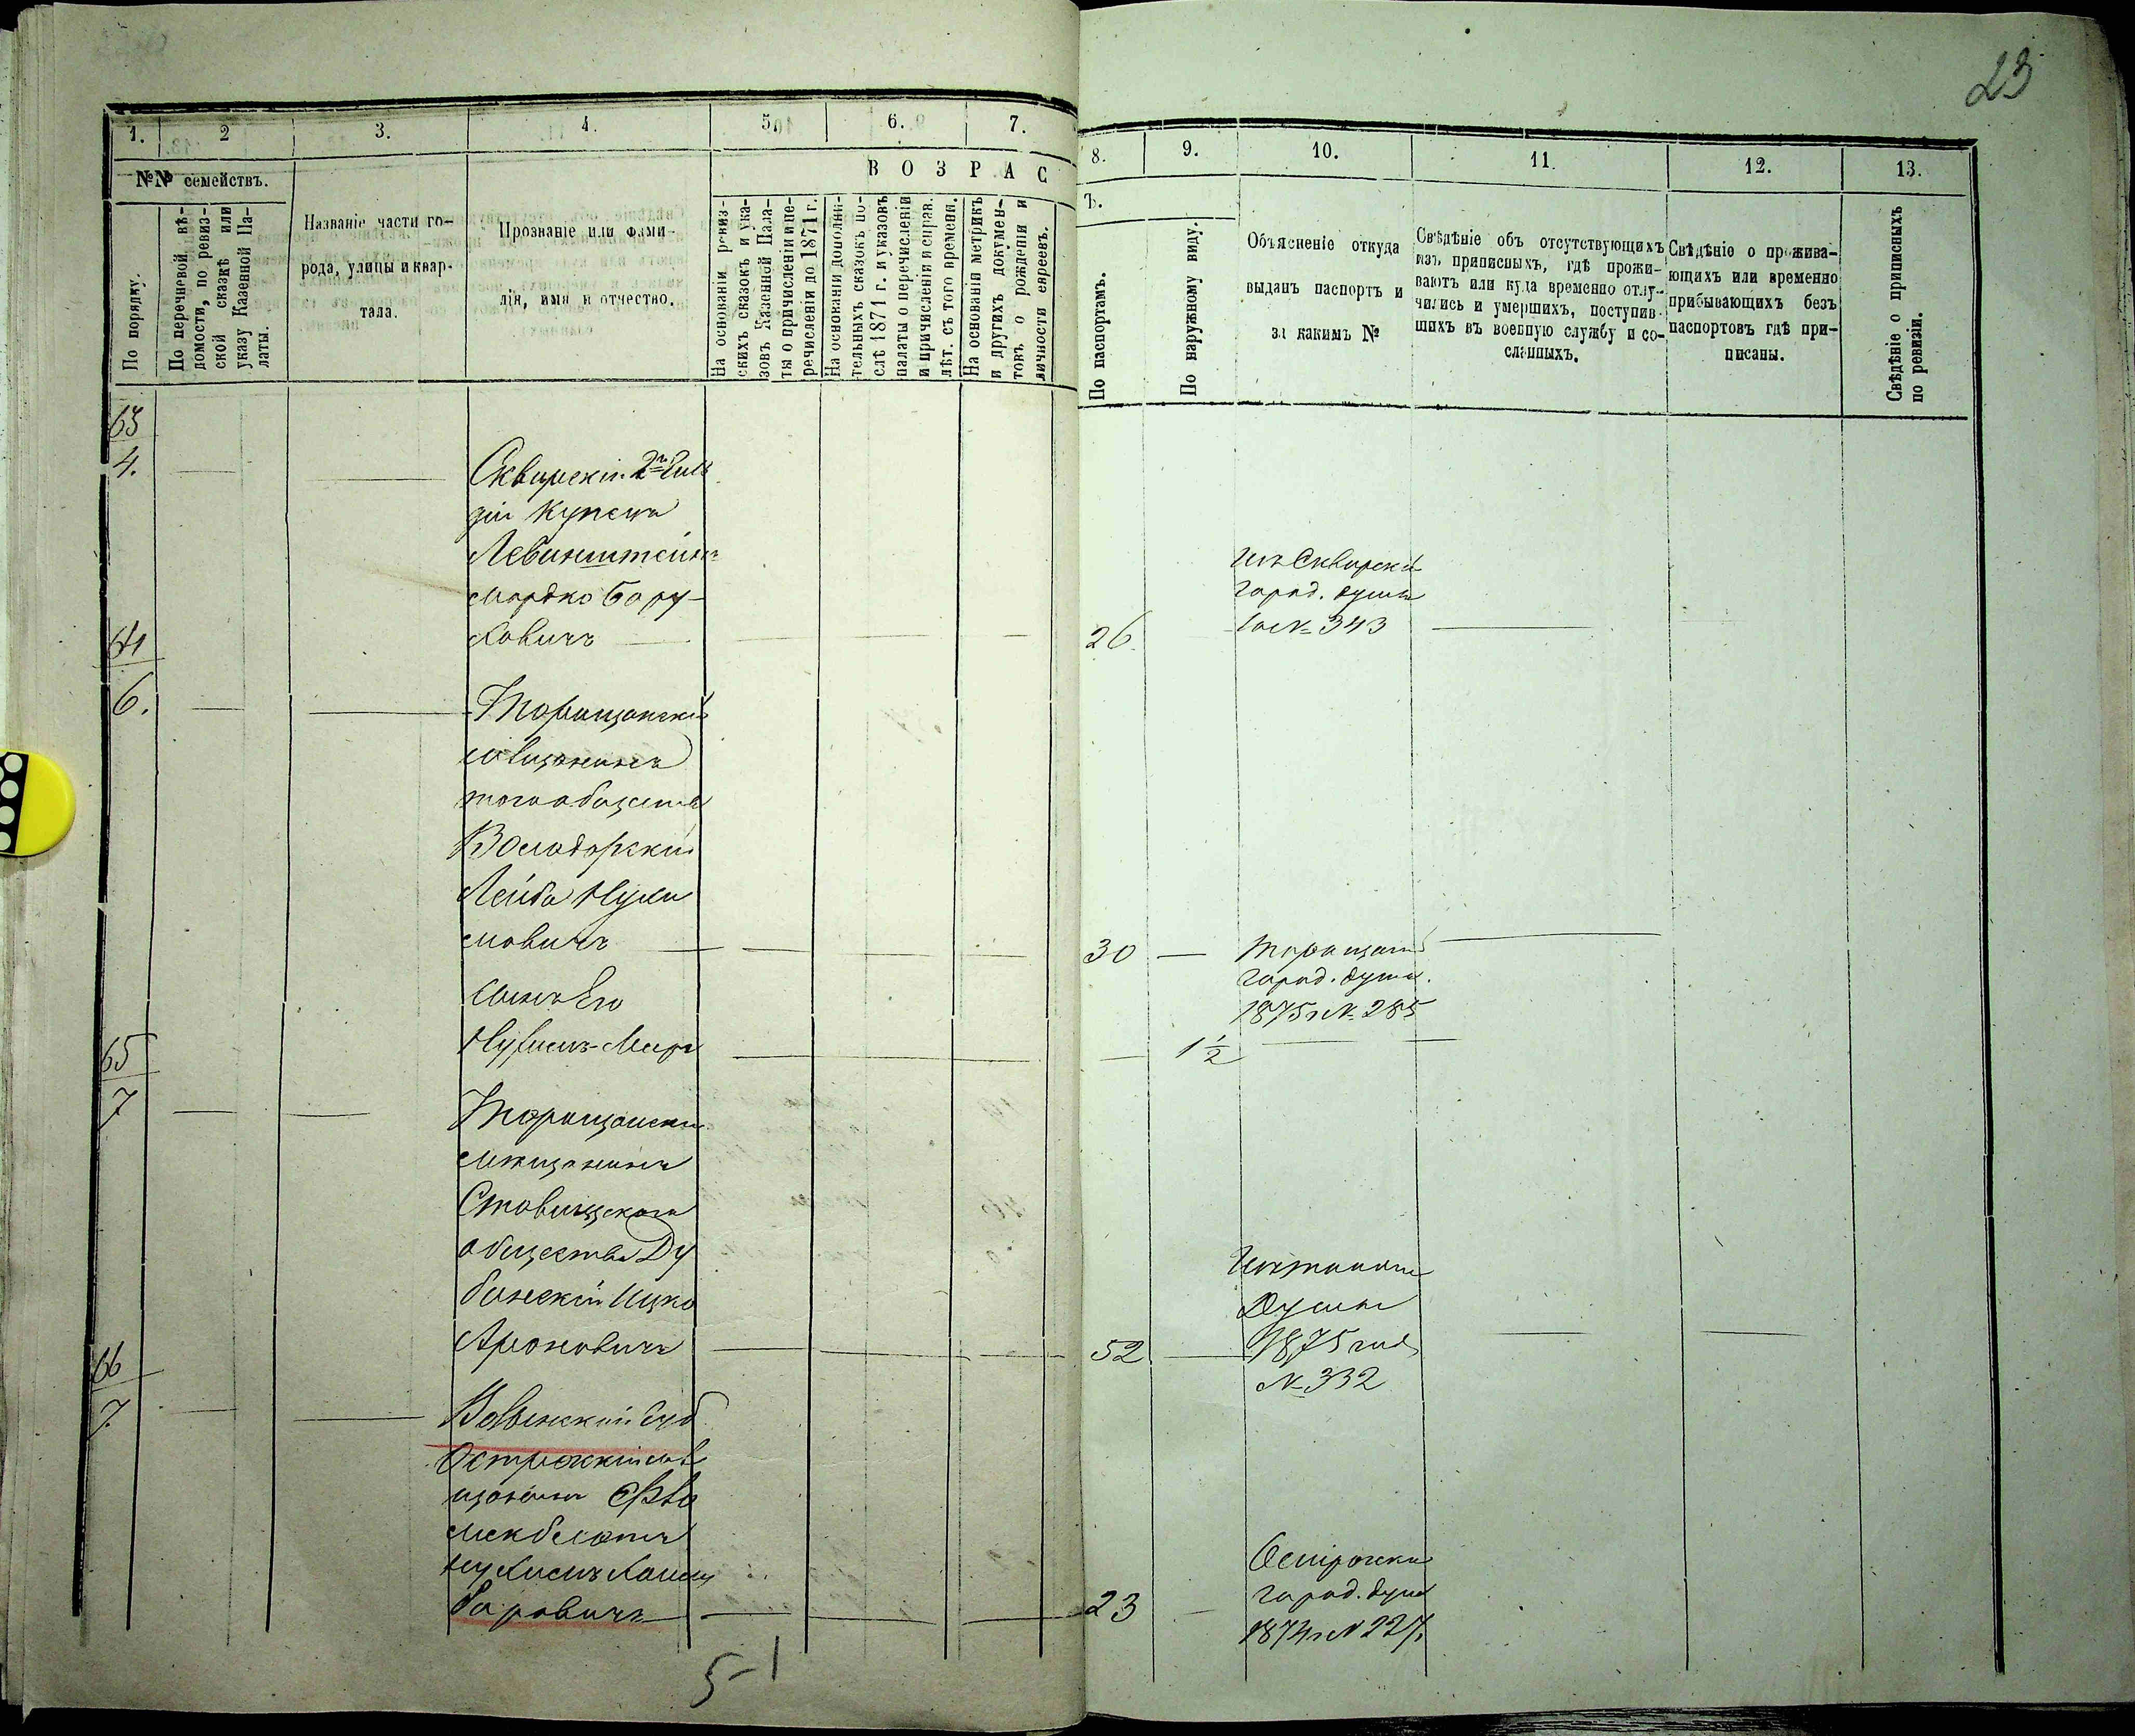 23
1.
2
3.
4.
5.
6.
7.
8.
9.
10.
11.
12.
13.
№№ семействъ.
По порядку.
По перечневой вѣ-
домости, по ревиз-
ской сказкѣ или
указу Казенной Па-
латы.
Названіе части го-
рода, улицы и квар-
тала.
Прозваніе или фами-
лія, имя и отчество.
ВОЗРАС
Ъ.
На основаніи ревиз-
скихъ сказокъ и ука-
зовъ Казенной Пала-
ты о причисленіи и пе-
речисленіи до 1871 г.
На основаніи дополни-
тельныхъ сказокъ по-
слѣ 1871 г. и указовъ
палаты о перечисленіи
и причисленіи и справ.
лѣт. съ того времени.
На основаніи метрикъ
и другихъ докумен-
товъ о рожденіи и
личности евреевъ.
По паспортамъ.
По наружному виду.
Объясненіе откуда
выданъ паспортъ и
за какимъ №
Свѣдѣніе объ отсутствующихъ
изъ приписныхъ, гдѣ прожи-
ваютъ или куда временно отлу-
чились и умершихъ, поступив-
шихъ въ военную службу и со-
сланныхъ.
Свѣдѣніе о прожива-
ющихъ или временно
прибывающихъ безъ
паспортовъ гдѣ при-
писаны.
Свѣдѣніе о приписныхъ
по ревизіи.
63
4.
Сквирскій 2й Гиль
діи Купецъ
Левинштейнъ
Мордко Бору-
ховичъ
26
Изъ Сквирск
город. думы
за № 343
64
6.
Таращанскій
мѣщанинъ
того общества
Володарскій
Лейба Нухи
мовичъ
30
Таращан
город. дума
1875 г № 285
Сынъ Его
Нухимъ-Мееръ
1 1/2
65
7
Таращански
мѣщанинъ
Ставищскаго
общества Ду
бинскій Ицко
Ароновичъ
52
Изъ
Думы
1875 года
№ 332
66
7.
Волынскій Губ
Острожскій мѣ
щанинъ
Нухимъ
боровичъ
23
Острожски
город. дума
1874 г № 227.
5-1